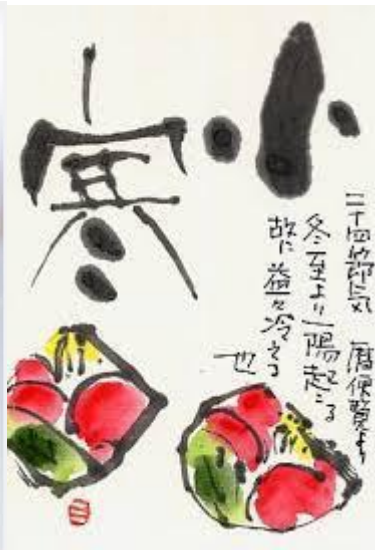 小
寒
二十四節気 暦便覧より
冬至より一陽起こる
故に益々冷える
也